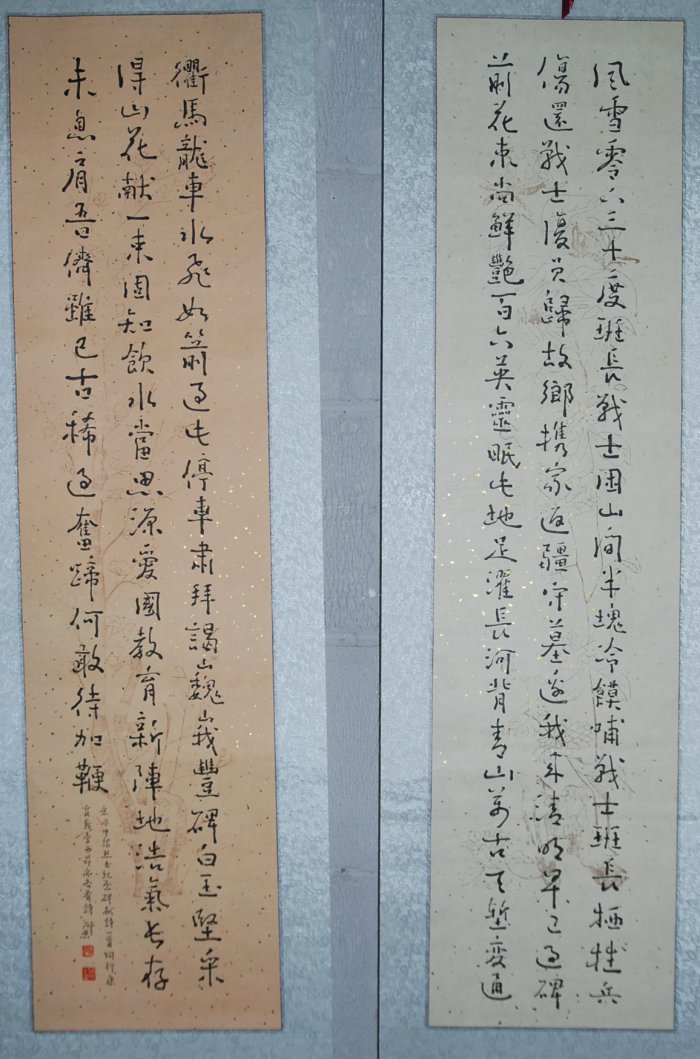 風雪零下三十度班長戰士困山間半塊冷饃哺戰士班長犧牲兵
傷還戰士復員歸故鄉攜家返疆守墓邊我來清明早已過碑
前花束尚鮮艷百六英靈眠此地足濯長河背青山萬古天塹變通
衢馬龍車水飛如箭過此停車肅拜謁巍峨豐碑白玉堅采
得山花献一束固知飲水當思源愛國教育新陣地浩氣長存
未息肩吾儕雖已古稀過奮蹄何敢待加鞭